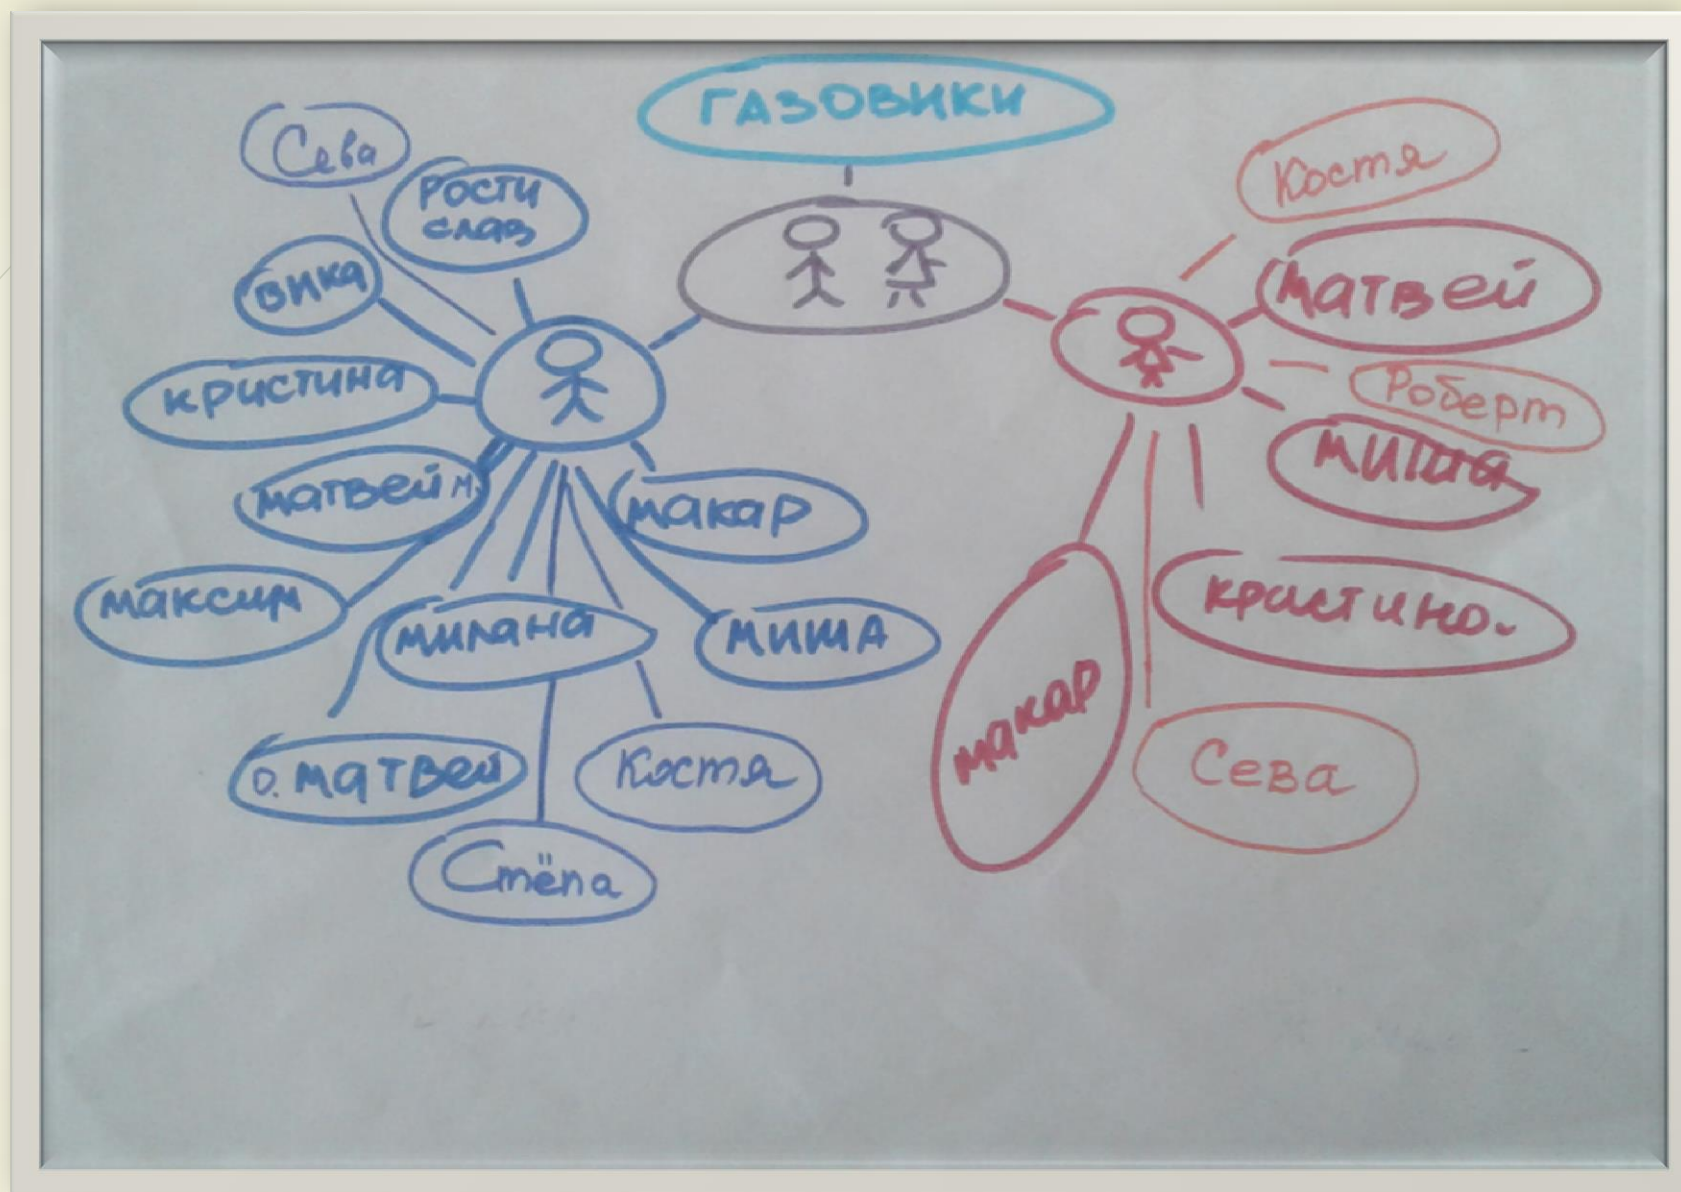 ГАЗОВИКИ
Сева
РОСТИ
слав
вика
кристина
матвей м.
максим
милана
макар
миша
о. матвей
Костя
Стёпа
Костя
матвей
Роберт
миша
кристино.
макар
Сева